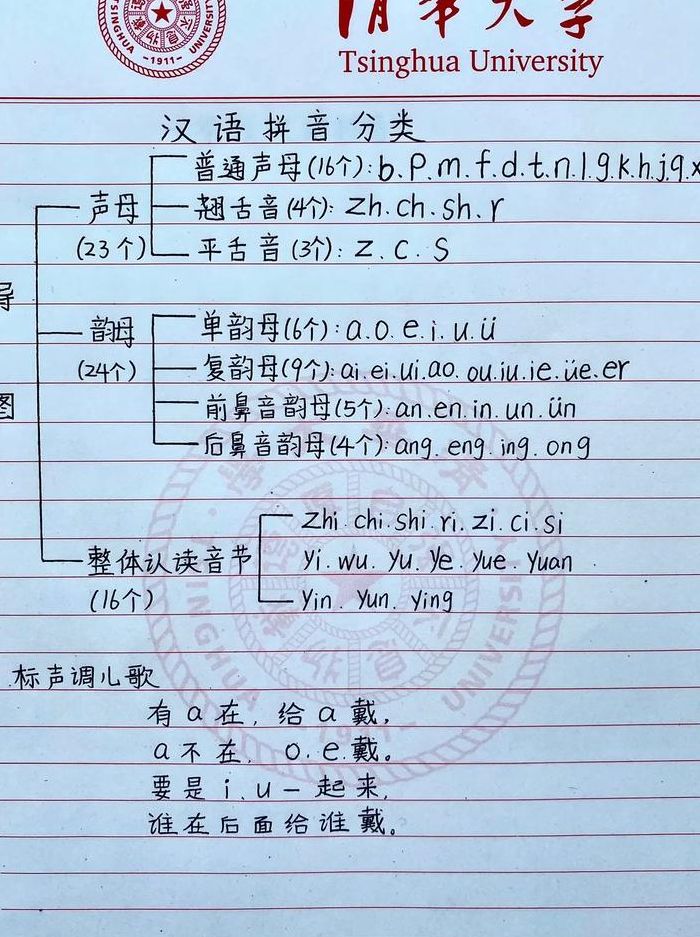 清华大学
Tsinghua University
TSINGHUA UNIVERSITY
-1911-
汉语拼音分类
普通声母(16个):b.p.m.f.d.t.n.l.g.k.h.j.q.x
声母
(23个)
翘舌音(4个):zh.ch.sh.r
平舌音(3个):z.c.s
导
图
韵母
(24个)
单韵母(6个):a.o.e.i.u.ü
复韵母(9个):ai.ei.ui.ao.ou.iu.ie.üe.er
前鼻音韵母(5个):an.en.in.un.ün
后鼻音韵母(4个):ang.eng.ing.ong
整体认读音节
(16个)
zhi.chi.shi.ri.zi.ci.si
yi.wu.yu.ye.yue.yuan
yin.yun.ying
标声调儿歌
有a在,给a戴,
a不在,o.e戴。
要是i、u一起来,
谁在后面给谁戴。